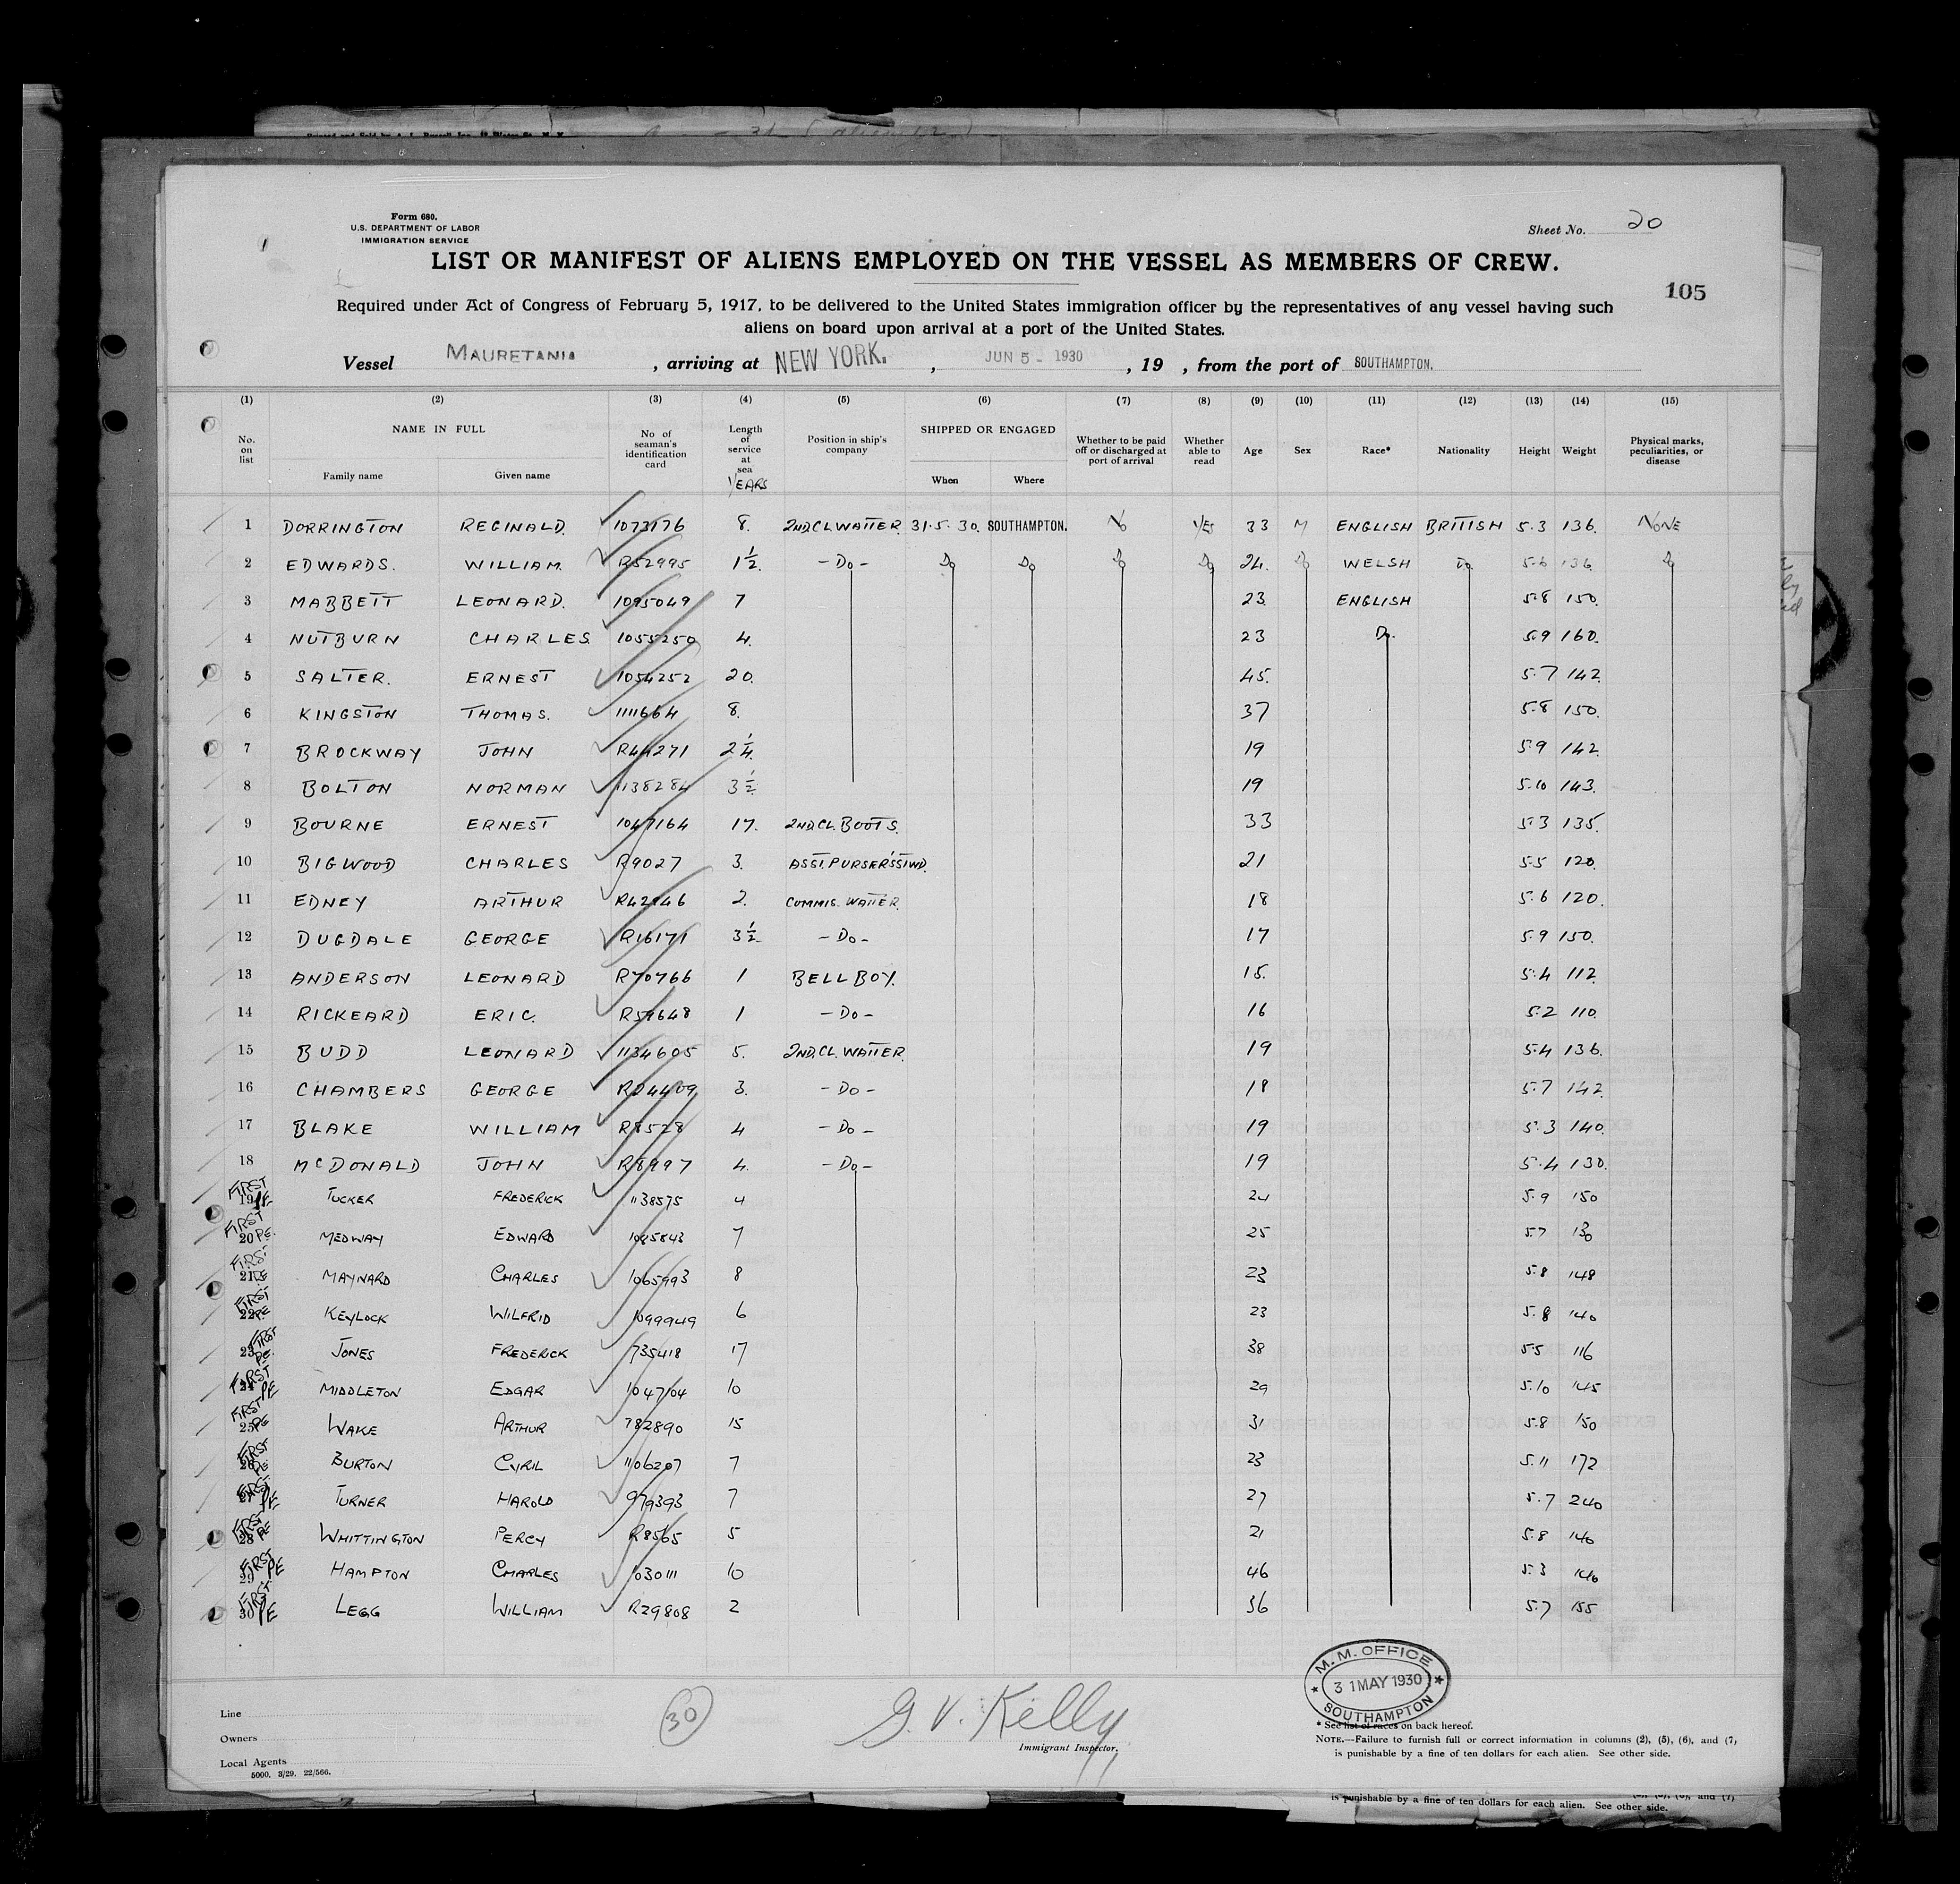 Form 680.
U.S. DEPARTMENT OF LABOR
IMMIGRATION SERVICE
Sheet No. 20
LIST OR MANIFEST OF ALIENS EMPLOYED ON THE VESSEL AS MEMBERS OF CREW.
105
Required under Act of Congress of February 5, 1917, to be delivered to the United States immigration officer by the representatives of any vessel having such
aliens on board upon arrival at a port of the United States.
Vessel MAURETANIA, arriving at NEW YORK., JUN 5 - 1930, 19 , from the port of SOUTHAMPTON.
(1) (2) (3) (4) (5) (6) (7) (8) (9) (10) (11) (12) (13) (14) (15)
No. on list NAME IN FULL Family name Given name No of seaman's identification card Length of service at sea YEARS Position in ship's company SHIPPED OR ENGAGED When Where Whether to be paid off or discharged at port of arrival Whether able to read Age Sex Race* Nationality Height Weight Physical marks, peculiarities, or disease
1 DORRINGTON REGINALD. 1073176 8. 2ND CL WAITER 31.5.30. SOUTHAMPTON. No YES 33 M ENGLISH BRITISH 5.3 136. NONE
2 EDWARDS. WILLIAM. R52995 1½. -Do- Do Do Do Do 24. Do WELSH Do. 5.6 136. Do
3 MABBETT LEONARD. 1095049 7 23 ENGLISH 5.8 150.
4 NUTBURN CHARLES 1055250 4. 23 Do. 5.9 160.
5 SALTER. ERNEST 1054252 20. 45. 5.7 142.
6 KINGSTON THOMAS. 1111664 8. 37 5.8 150.
7 BROCKWAY JOHN R44271 2¼. 19 5.9 142.
8 BOLTON NORMAN 1138284 3½ 19 5.10 143.
9 BOURNE ERNEST 1047164 17. 2ND CL. BOOTS. 33 5.3 135.
10 BIGWOOD CHARLES R9027 3. ASST. PURSER'S STWD. 21 5.5 120.
11 EDNEY ARTHUR R42946 2. COMMIS. WAITER. 18 5.6 120.
12 DUGDALE GEORGE R16171 3½ -Do- 17 5.9 150.
13 ANDERSON LEONARD R70766 1 BELL BOY. 15. 5.4 112.
14 RICKEARD ERIC. R59648 1 -Do- 16 5.2 110.
15 BUDD LEONARD 1134605 5. 2ND. CL. WAITER. 19 5.4 136.
16 CHAMBERS GEORGE R24409 3. -Do- 18 5.7 142.
17 BLAKE WILLIAM R8528 4 -Do- 19 5.3 140.
18 McDONALD JOHN R8997 4. -Do- 19 5.4 130.
FIRST
19 PE TUCKER FREDERICK 1138575 4 24 5.9 150
FIRST
20 PE. MEDWAY EDWARD 1085843 7 25 5.7 130
FIRST
21 PE MAYNARD CHARLES 1065993 8 23 5.8 148
FIRST
22 PE KEYLOCK WILFRID 1099949 6 23 5.8 140
FIRST
23 PE. JONES FREDERICK 735418 17 38 5.5 116
FIRST
24 PE MIDDLETON EDGAR 1047104 10 29 5.10 145
FIRST
25 PE WAKE ARTHUR 782890 15 31 5.8 150
FIRST
26 PE BURTON CYRIL 1106207 7 23 5.11 172
FIRST
27 PE TURNER HAROLD 979393 7 27 5.7 240
FIRST
28 PE WHITTINGTON PERCY R8565 5 21 5.8 140
FIRST
29 PE HAMPTON CHARLES 1030111 10 46 5.3 146
FIRST
30 PE LEGG WILLIAM R29808 2 36 5.7 155
M. M. OFFICE
31 MAY 1930
SOUTHAMPTON
Line
Owners
Local Agents
5000. 3/29. 22/566.
30
G. V. Kelly
Immigrant Inspector.
* See list of races on back hereof.
NOTE.—Failure to furnish full or correct information in columns (2), (5), (6), and (7)
is punishable by a fine of ten dollars for each alien. See other side.
is punishable by a fine of ten dollars for each alien. See other side.